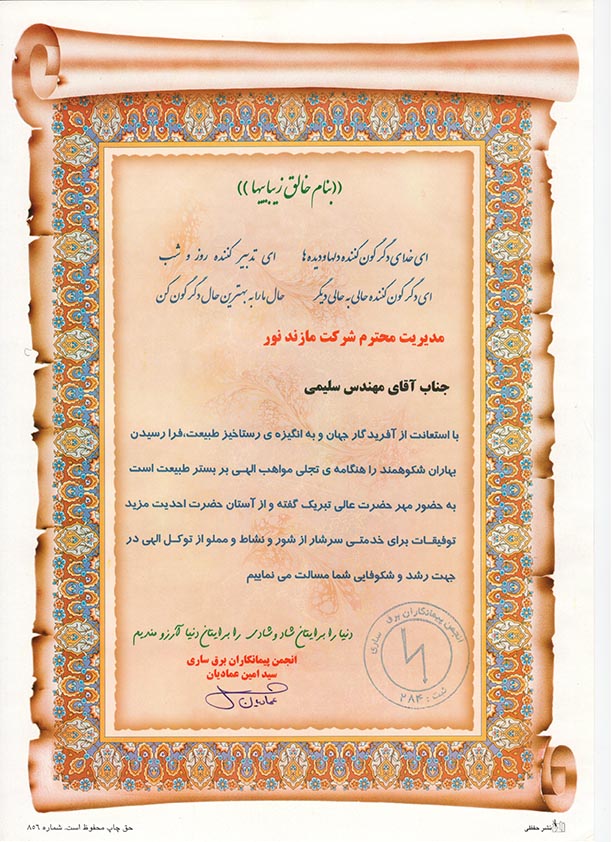 ((بنام خالق زیباییها))
ای خدای دگرگون کننده دلها و دیده ها ای تدبیر کننده روز و شب
ای دگرگون کننده حالی به حالی دیگر حال ما را به بهترین حال دگرگون کن
مدیریت محترم شرکت مازند نور
جناب آقای مهندس سلیمی
با استعانت از آفریدگار جهان و به انگیزه ی رستاخیز طبیعت،فرا رسیدن
بهاران شکوهمند را هنگامه ی تجلی مواهب الهی بر بستر طبیعت است
به حضور مهر حضرت عالی تبریک گفته و از آستان حضرت احدیت مزید
توفیقات برای خدمتی سرشار از شور و نشاط و مملو از توکل الهی در
جهت رشد و شکوفایی شما مسالت می نماییم
دنیا را برایتان شاد و شادی را برایتان دنیا آرزو مندیم
انجمن پیمانکاران برق ساری
سید امین عمادیان
عمادیان
انجمن پیمانکاران برق ساری
ثبت : ۲۸۴
نشر حفظی
حق چاپ محفوظ است. شماره ۸۵۶